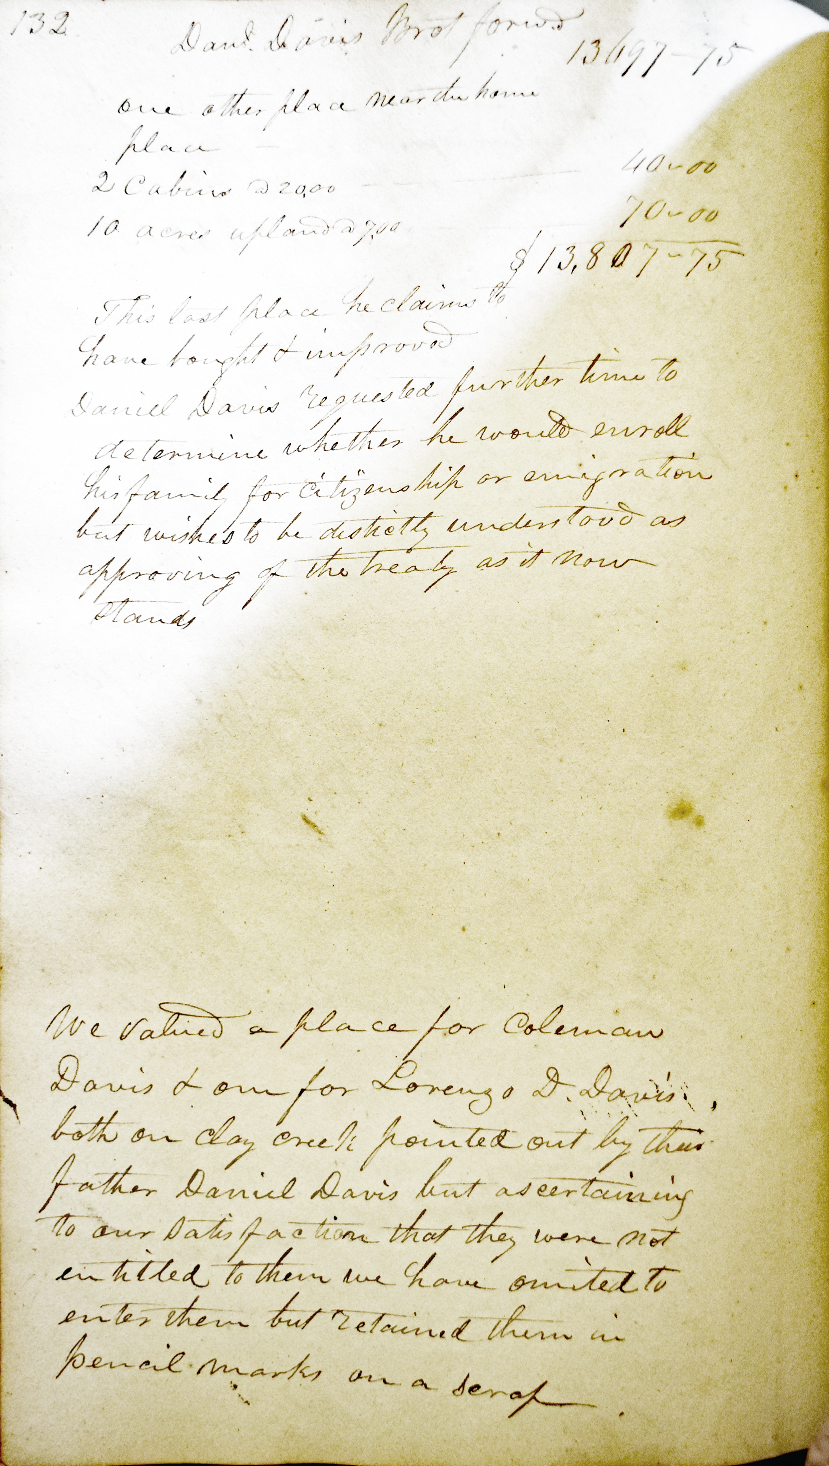 132
Danl. Davis Brot forwd
13697-75
one other place near the home
place
2 Cabins @ 20,00 40-00
10 acres upland @ 7,00 70-00
$13,807-75
This last place he claims to
have bought & improved
Daniel Davis requested further time to
determine whether he would enroll
his family for citizenship or emigration
but wishes to be distictly understood as
approving of the treaty as it now
stands
We valued a place for Coleman
Davis & one for Lorenzo D. Davis,
both on clay creek pointed out by their
father Daniel Davis but ascertaining
to our satisfaction that they were not
entitled to them we have omited to
enter them but retained them in
pencil marks on a scrap